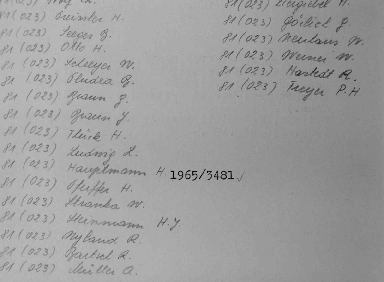 81(023)
81(023) H.
81(023) Seeger G.
81(023) Otte H.
81(023) W.
81(023) G.
81(023) Braun G.
81(023) Braun J.
81(023) Flück H.
81(023) Ludwig L.
81(023) Hauptmann H. 1965/3481
81(023) Pfeiffer H.
81(023) Stranka W.
81(023) Steinmann H.J.
81(023) Nyland R.
81(023) Bartsch R.
81(023) Müller A.
81(023) H.
81(023) Görlich G.
81(023) Neuhaus W.
81(023) Werner W.
81(023) R.
81(023) Freyer P.H